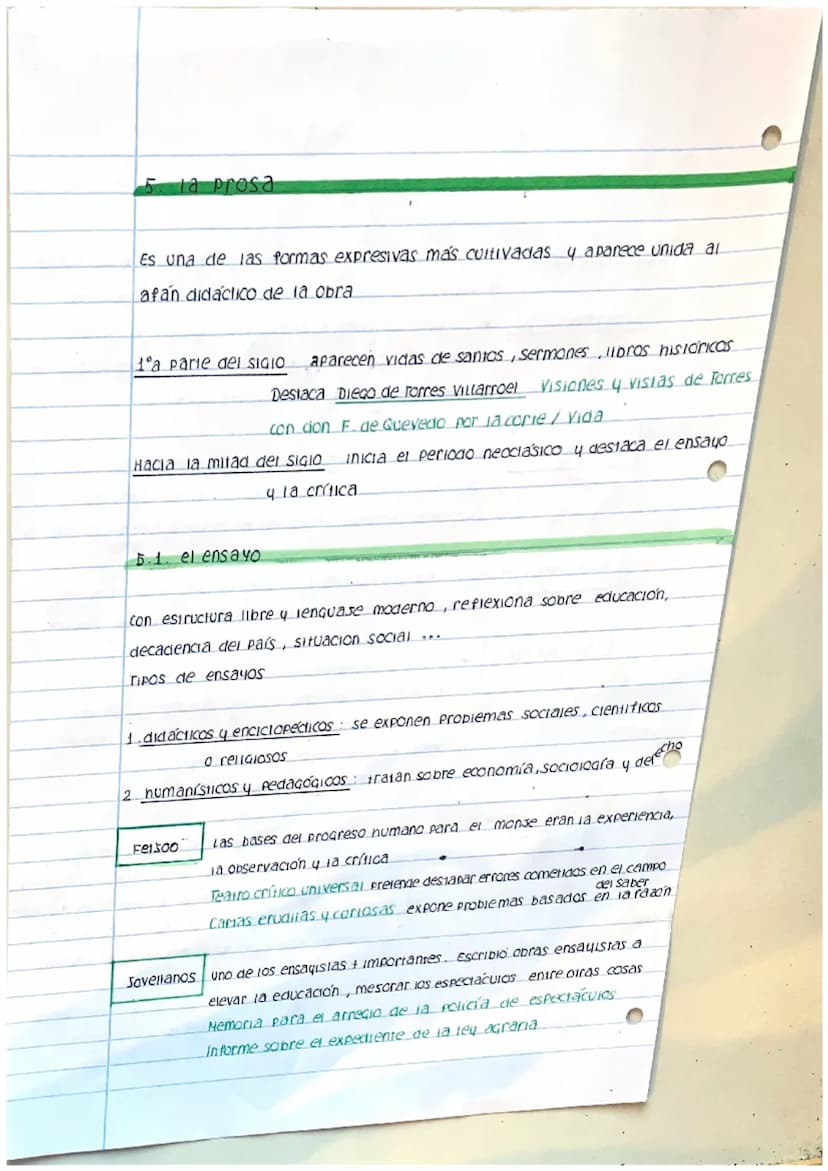 5. la prosa
Es una de las formas expresivas más cultivadas y aparece unida al
afán didáctico de la obra
1ªa parte del siglo aparecen vidas de santos, sermones, libros históricos
Destaca Diego de Torres Villarroel Visiones y visias de Torres
con don F. de Quevedo por la corte / Vida
Hacia la mitad del siglo inicia el periodo neoclásico y destaca el ensayo
y la crítica
5.1. el ensayo
Con estructura libre y lenguaje moderno, reflexiona sobre educación,
decadencia del país, situación social ...
Tipos de ensayos
1. didácticos y enciclopédicos: se exponen problemas sociales, científicos
o religiosos
2. humanísticos y pedagógicos: tratan sobre economía, sociología y derecho
Feijoo Las bases del progreso humano para el monje eran la experiencia,
la observación y la crítica
Teatro crítico universal pretende destapar errores cometidos en el campo
del saber
Cartas eruditas y curiosas expone problemas basados en la razón
Jovellanos uno de los ensayistas + importantes. Escribió obras ensayistas a
elevar la educación, mejorar los espectáculos entre otras cosas
Memoria para el arreglo de la policía de espectáculos
Informe sobre el expediente de la ley agraria